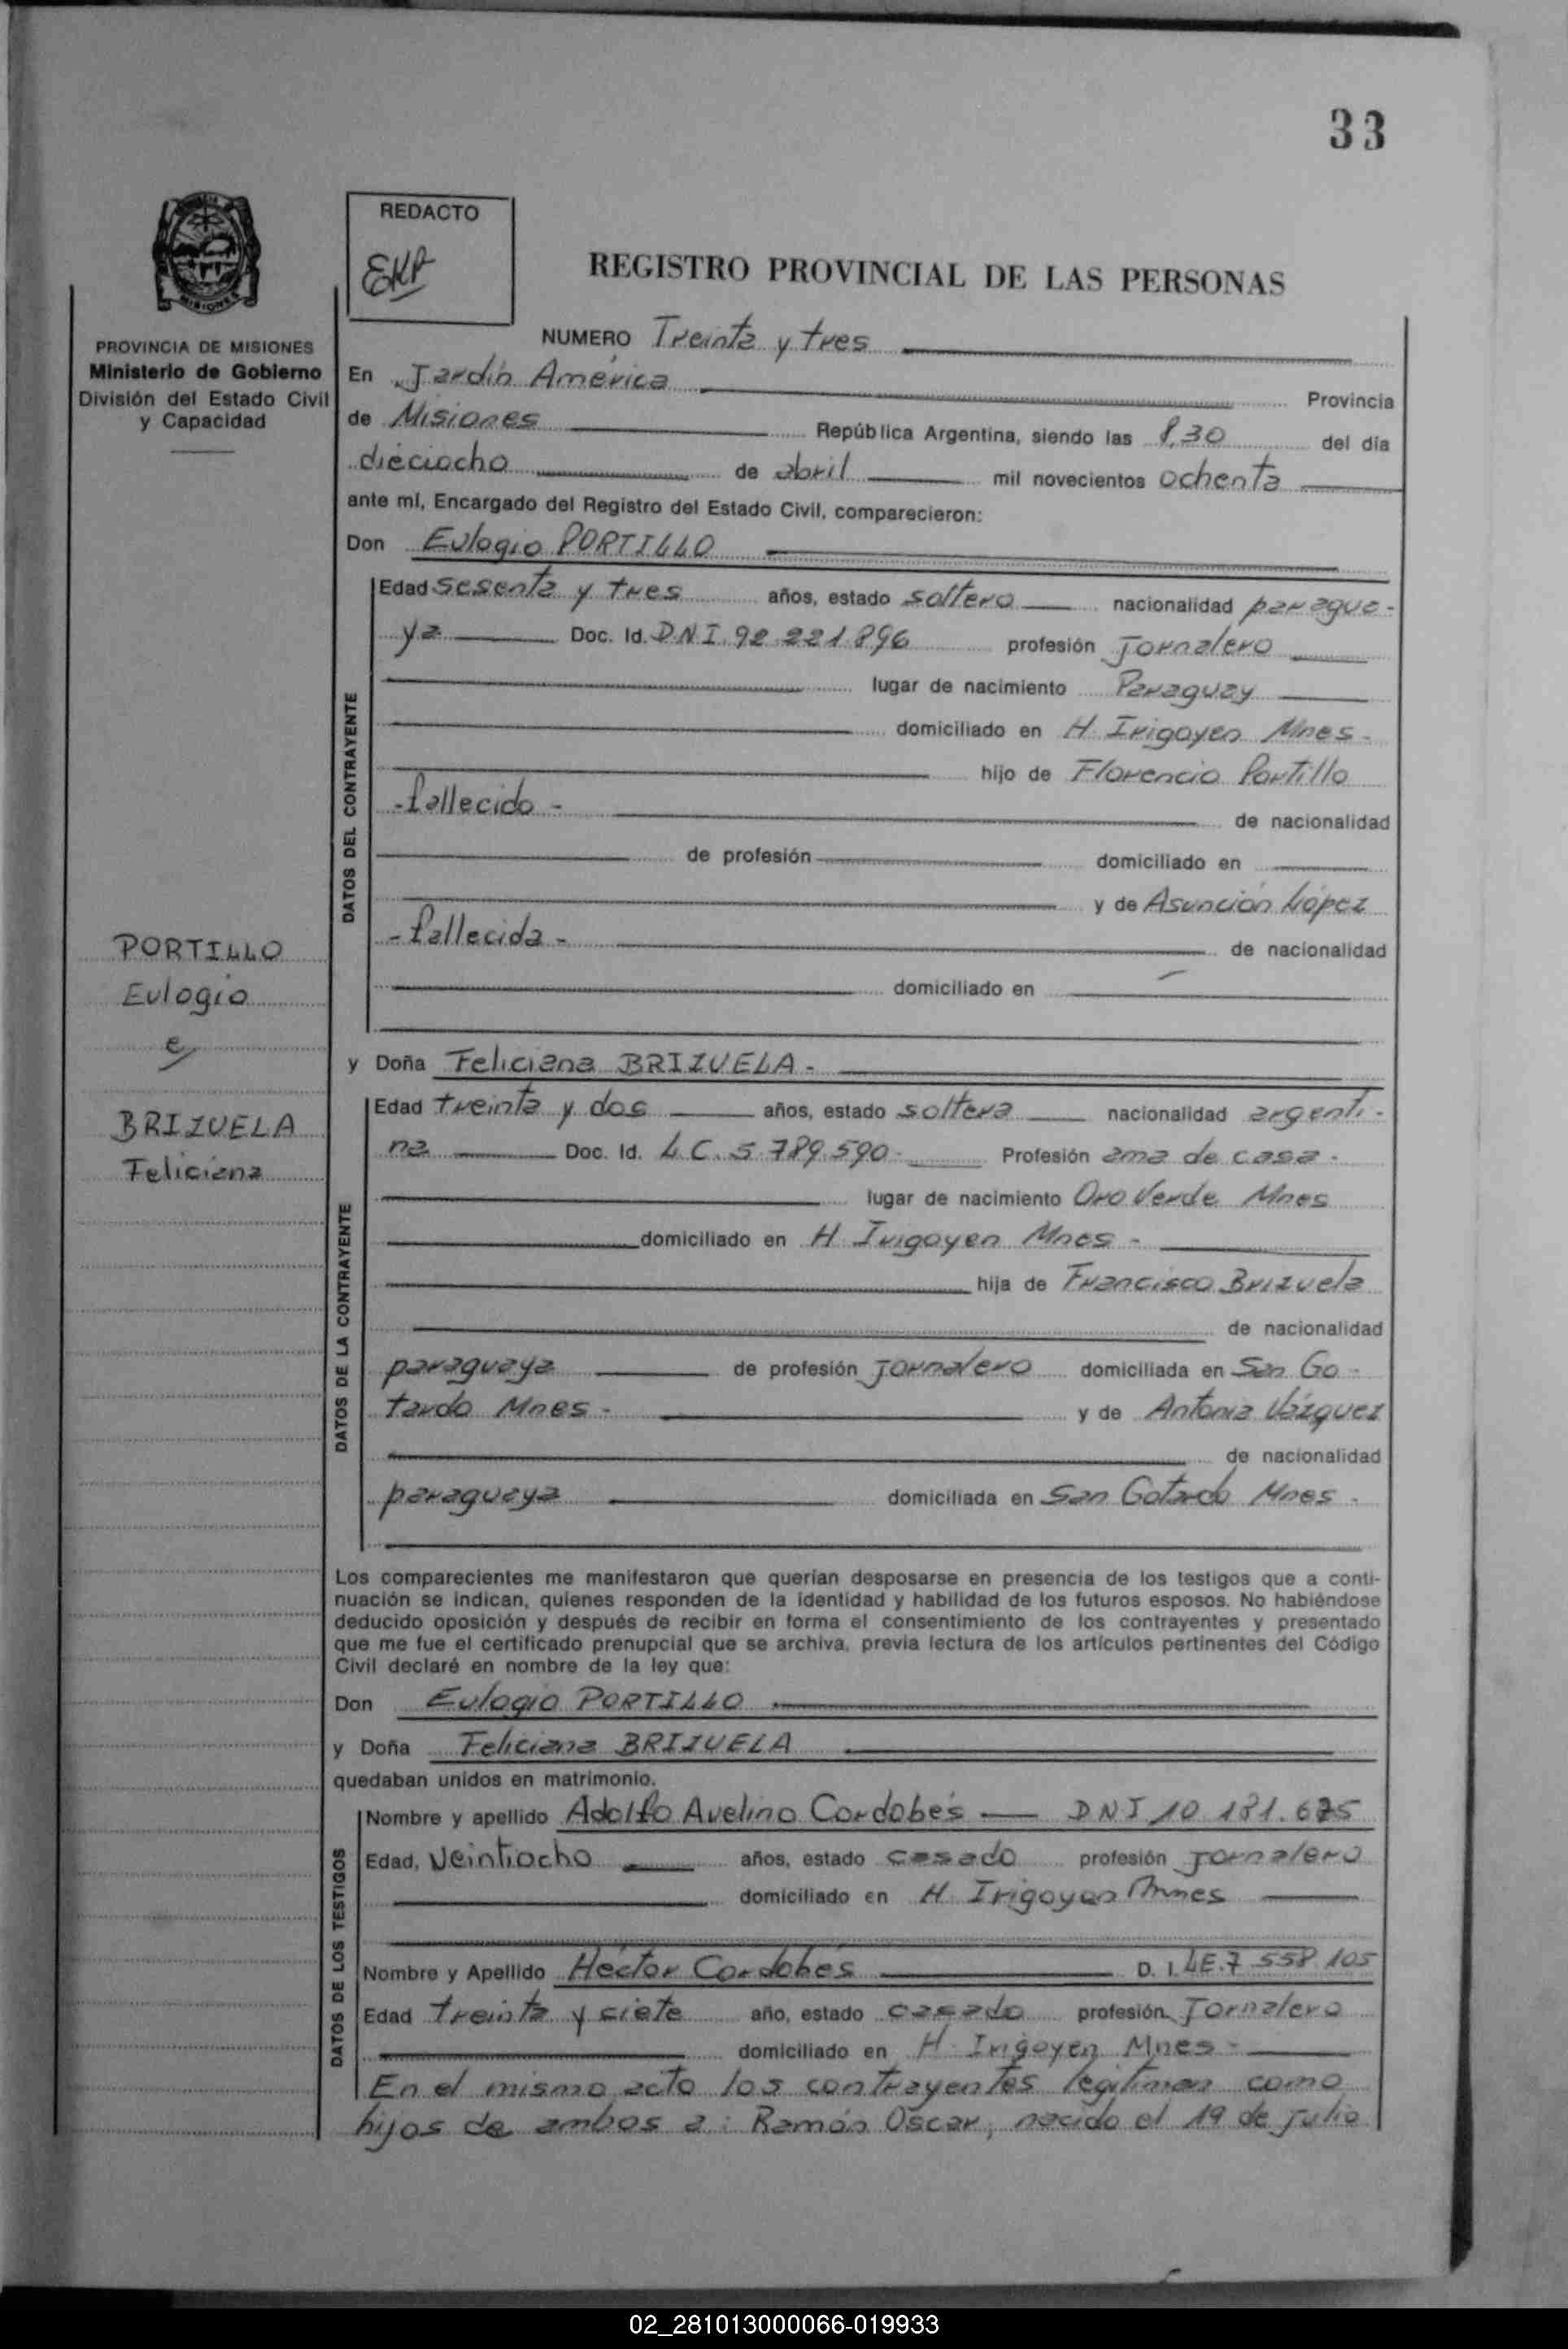 33
REDACTO
EKP
REGISTRO PROVINCIAL DE LAS PERSONAS
MISIONES
PROVINCIA DE MISIONES
Ministerio de Gobierno
División del Estado Civil
y Capacidad
NUMERO Treinta y tres
En Jardín América Provincia
de Misiones República Argentina, siendo las 8,30 del día
dieciocho de abril mil novecientos ochenta
ante mí, Encargado del Registro del Estado Civil, comparecieron:
Don Eulogio PORTILLO
DATOS DEL CONTRAYENTE
Edad sesenta y tres años, estado soltero nacionalidad paragua-
ya Doc. Id. D.N.I. 92.221.896 profesión jornalero
lugar de nacimiento Paraguay
domiciliado en H. Irigoyen Mnes-
hijo de Florencio Portillo
-fallecido- de nacionalidad
de profesión domiciliado en
y de Asunción López
-fallecida- de nacionalidad
domiciliado en
PORTILLO
Eulogio
e
BRIZUELA
Feliciana
y Doña Feliciana BRIZUELA-
DATOS DE LA CONTRAYENTE
Edad treinta y dos años, estado soltera nacionalidad argenti-
na Doc. Id. L.C. 5.789.590- Profesión ama de casa-
lugar de nacimiento Oro Verde Mnes
domiciliado en H. Irigoyen Mnes-
hija de Francisco Brizuela
de nacionalidad
paraguaya de profesión jornalero domiciliada en San Go-
tardo Mnes- y de Antonia Vázquez
de nacionalidad
paraguaya domiciliada en San Gotardo Mnes-
Los comparecientes me manifestaron que querían desposarse en presencia de los testigos que a conti-
nuación se indican, quienes responden de la identidad y habilidad de los futuros esposos. No habiéndose
deducido oposición y después de recibir en forma el consentimiento de los contrayentes y presentado
que me fue el certificado prenupcial que se archiva, previa lectura de los artículos pertinentes del Código
Civil declaré en nombre de la ley que:
Don Eulogio PORTILLO
y Doña Feliciana BRIZUELA
quedaban unidos en matrimonio.
DATOS DE LOS TESTIGOS
Nombre y apellido Adolfo Avelino Cordobés DNI 10.181.675
Edad, Veintiocho años, estado casado profesión jornalero
domiciliado en H. Irigoyen Mnes
Nombre y Apellido Héctor Cordobés D. I. LE.7.558.105
Edad treinta y siete año, estado casado profesión Jornalero
domiciliado en H. Irigoyen Mnes-
En el mismo acto los contrayentes legitiman como
hijos de ambos a: Ramón Oscar, nacido el 19 de julio
02_281013000066-019933